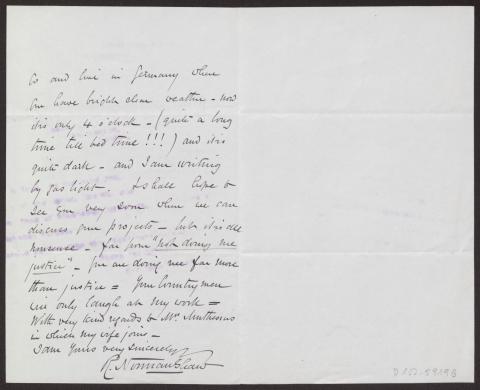 Go and live in Germany where
you have bright clear weather - now
it is only 4 o'clock - (quite a long
time till bed time !!!) and it is
quite dark - and I am writing
by gas light. I shall hope to
see you very soon when we can
discuss your projects - but it is all
nonsense - for your "not doing me
justice" - You are doing me far more
than justice = Your Countrymen
will only laugh at my work =
With very kind regards to Mrs Muthesius
in which my wife joins -
I am Yours very sincerely
R. Norman Shaw
D 102-5919 B